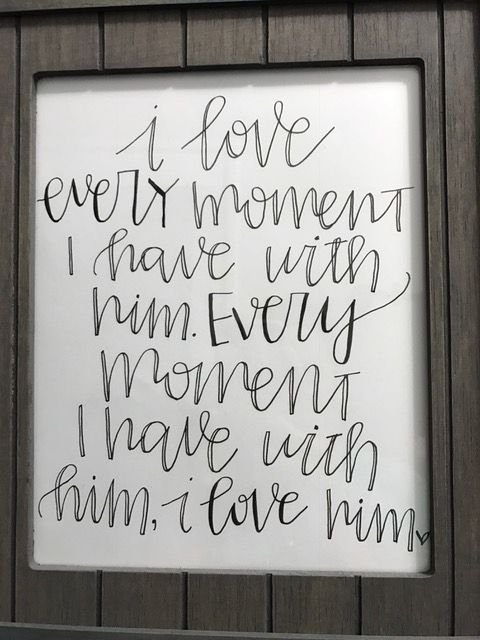 i love
every moment
I have with
him. Every
moment
I have with
him, i love him